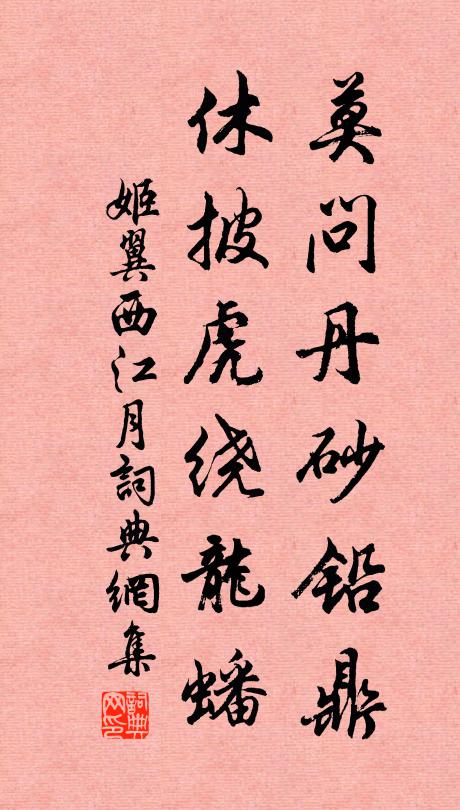 莫问丹砂铅鼎
休披虎绕龍蟠
姬翼西江月詞典網集
詞典网印